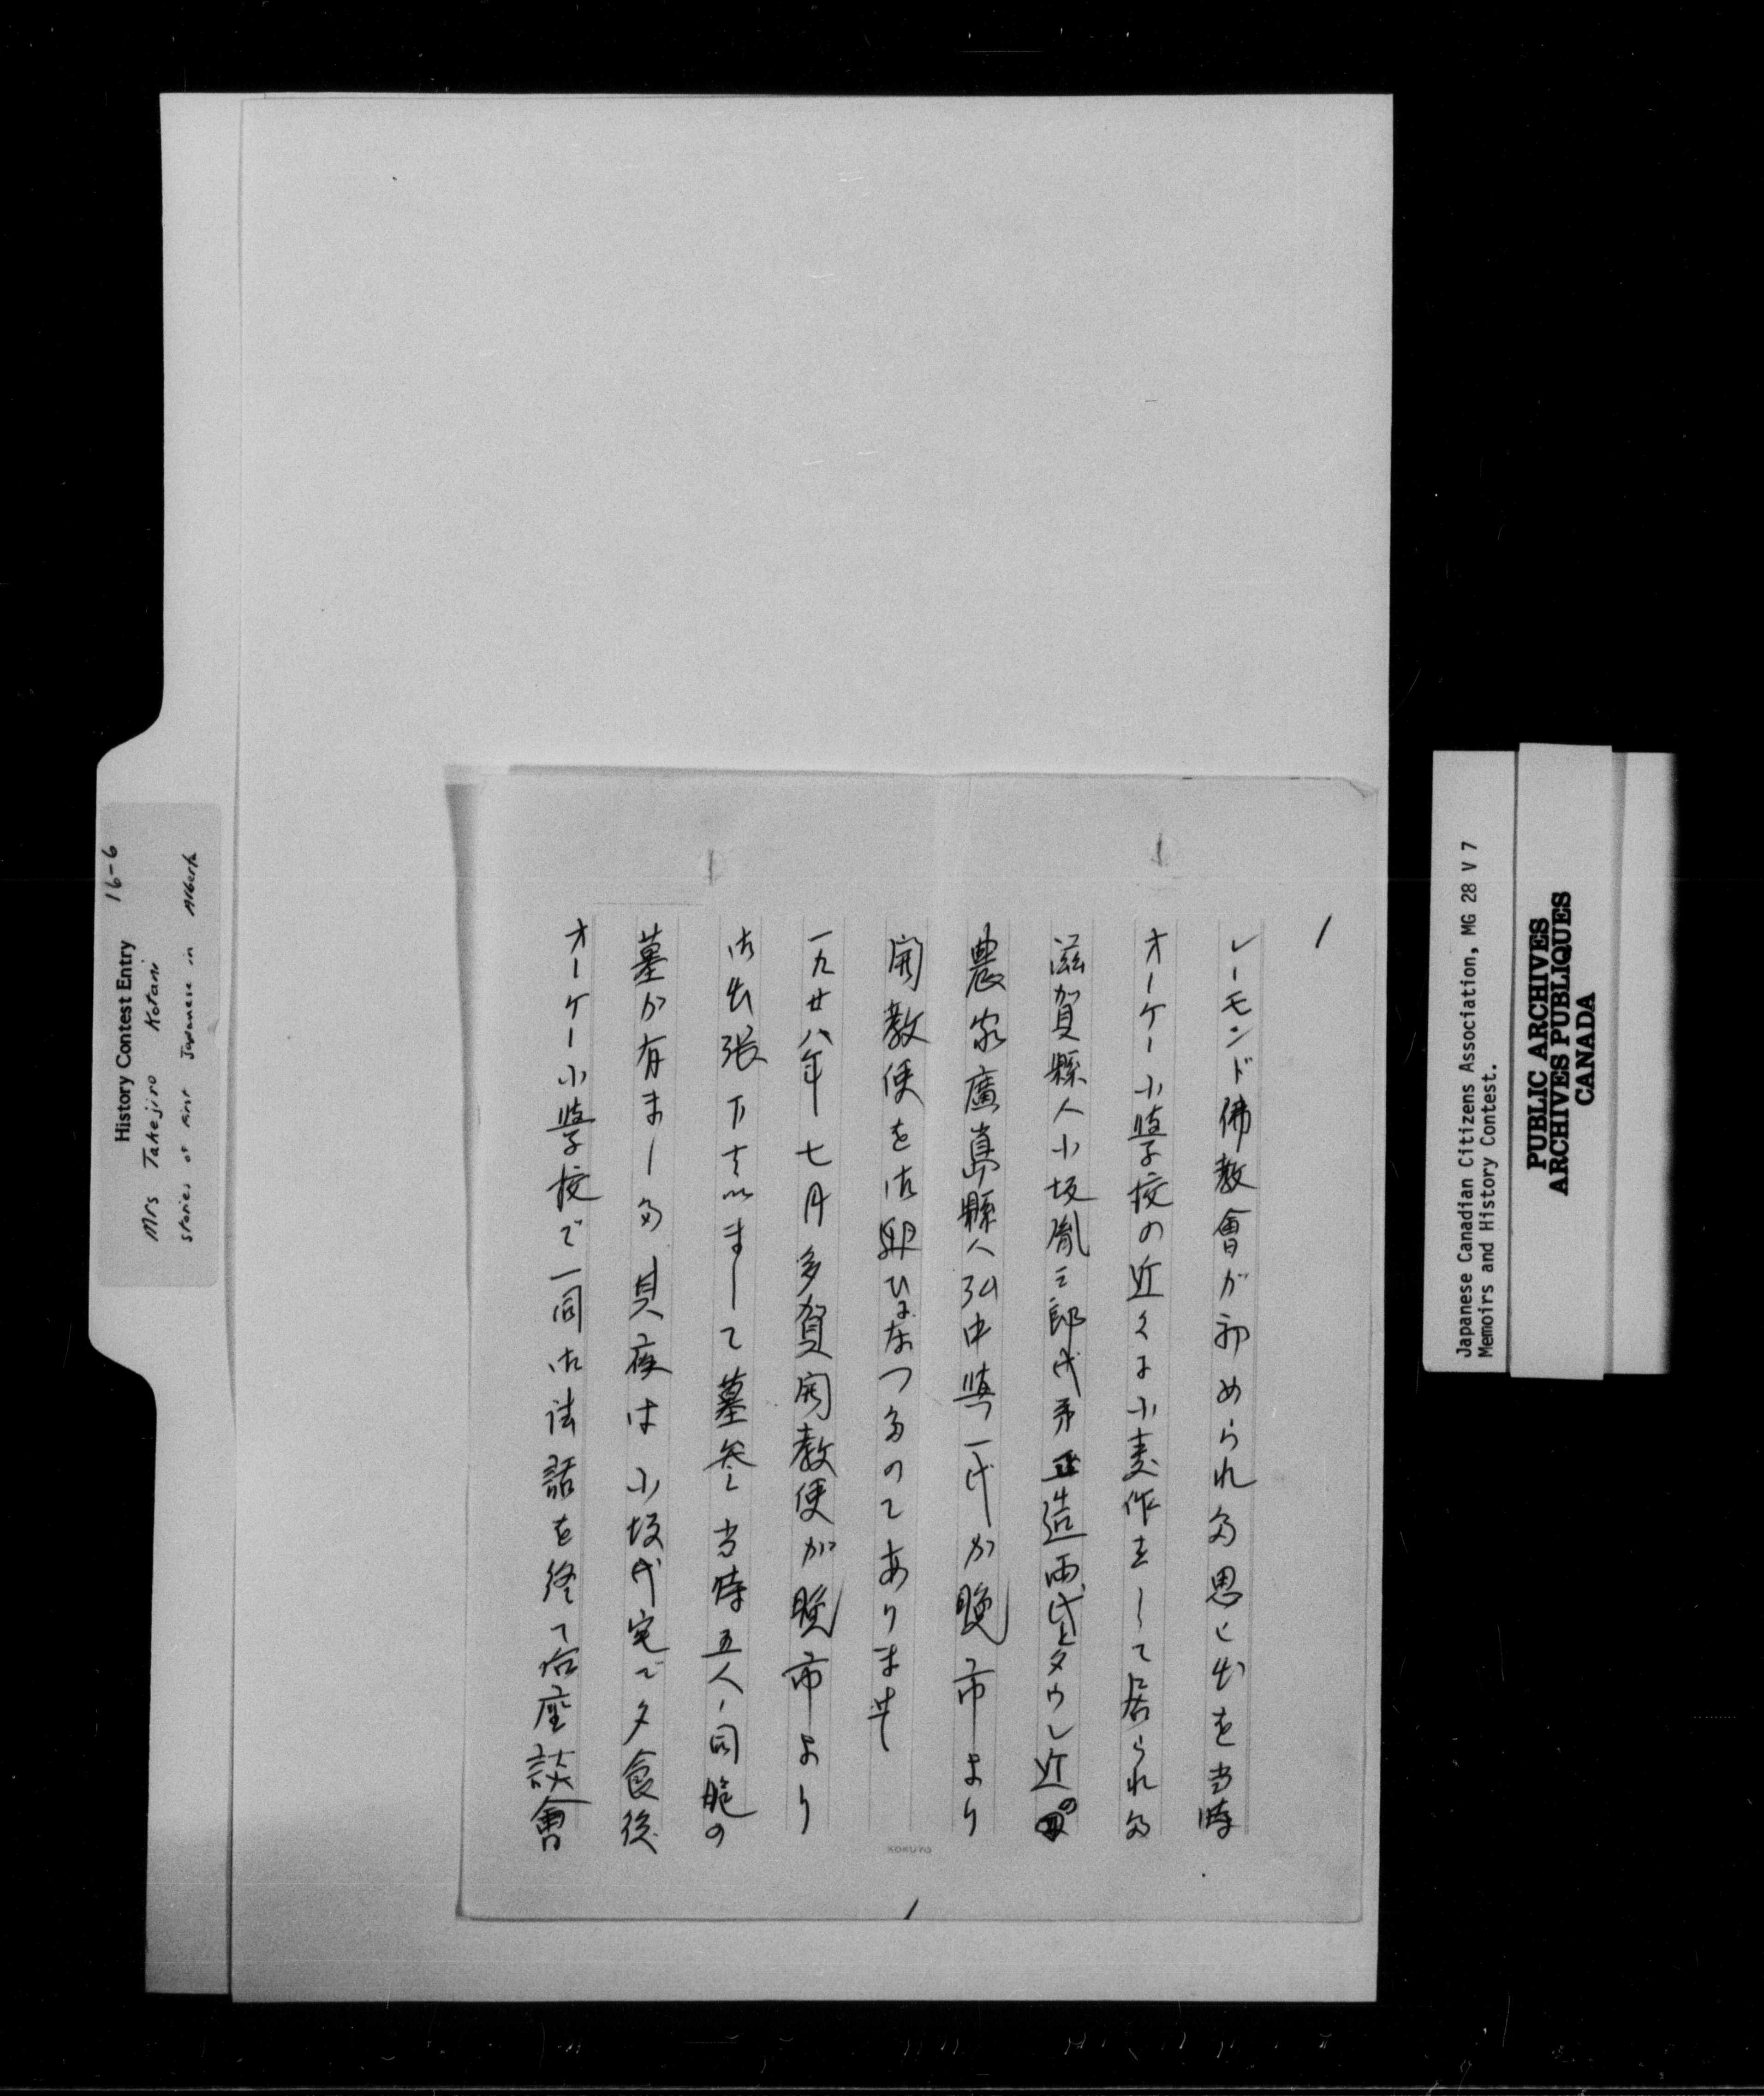 History Contest Entry 16-6
Mrs Takejiro Kotani
stories of first Japanese in Alberta
1
レーモンド佛教會が初められ多思ひ出を当時
オーケー小學校の近くに小麦作をして居られ多
滋賀縣人小坂胤三郎氏弟正造両氏とタウン近の
農家廣島縣人弘中與一氏が晩市より
開教使を御迎ひになつ多のであります
一九廿八年七月多賀開教使が晩市より
御出張下さいまして墓参し当時五人ノ同胞の
墓が有まし多其夜は小坂氏宅で夕食後
オーケー小學校で一同御法話を終て后座談會
KOKUYO
1
Japanese Canadian Citizens Association, MG 28 V 7
Memoirs and History Contest.
PUBLIC ARCHIVES
ARCHIVES PUBLIQUES
CANADA